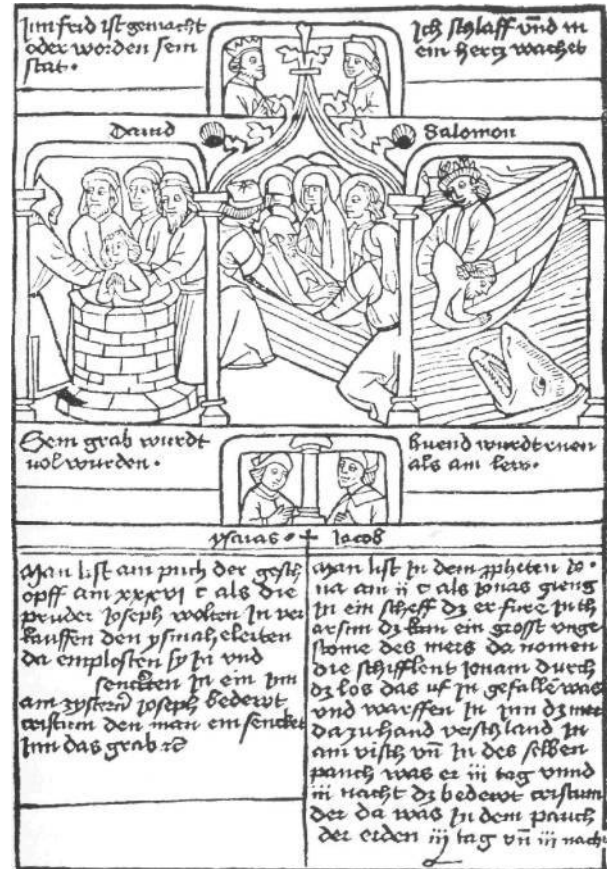 Im frid ist gemacht
oder worden sein
stat.
Ich schlaff vnd m
ein hertz wachet
Dauid
Salomon
Sein grab wurdt
vol wurden.
als am lew.
ysaias. + Jacob
Man list am puch der gesch
opff am xxxvi c als die
pruder Joseph wolten In ver
kauffen den ysmaheleiten
da emplosten sy In vnd
senckten in ein Inn
am zystern Joseph bedewt
cristum den man ein sencket
Inn das grab rc
Man list In dem ppheten Jo.
na am ii c als Jonas gieng
In ein scheff dz er fure In th
arsim dz kam ein grosse vnge
stome des mers da nomen
die schifflent Jonam durch
dz los das uf In gefallē was
vnd warffen In Inn dz mer
da zuhand verschland In
am visch vñ In des selben
pauch was er iii tag vnnd
iii nacht dz bedewt cristum
der da was In dem pauch
der erden iij tag vñ iii nacht